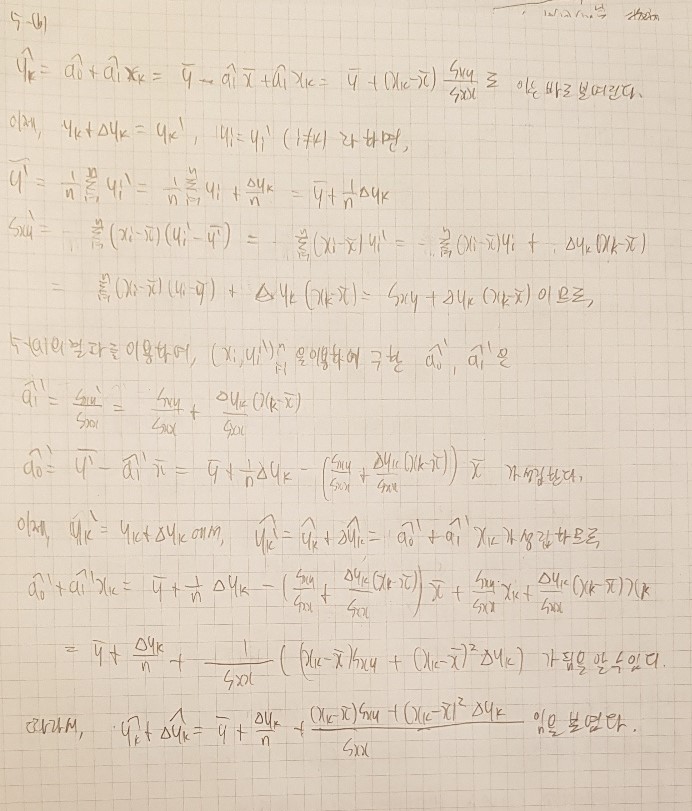 5-(b)
ŷ_k = â_0 + â_1 x_k = ȳ - â_1 x̄ + â_1 x_k = ȳ + (x_k - x̄) Sxy/Sxx 로 이는 바로 보여진다.
이제, y_k + Δy_k = y_k', y_i = y_i' (i≠k) 라 하면,
ȳ' = 1/n Σ_{i=1}^n y_i' = 1/n Σ_{i=1}^n y_i + Δy_k/n = ȳ + 1/n Δy_k
Sxy' = Σ_{i=1}^n (x_i - x̄)(y_i' - ȳ') = Σ_{i=1}^n (x_i - x̄) y_i' = Σ_{i=1}^n (x_i - x̄) y_i + Δy_k (x_k - x̄)
= Σ_{i=1}^n (x_i - x̄)(y_i - ȳ) + Δy_k (x_k - x̄) = Sxy + Δy_k (x_k - x̄) 이므로,
5-(a)의 결과를 이용하여, (x_i, y_i')_{i=1}^n 을 이용하여 구한 â_0', â_1' 은
â_1' = Sxy'/Sxx = Sxy/Sxx + Δy_k (x_k - x̄)/Sxx
â_0' = ȳ' - â_1' x̄ = ȳ + 1/n Δy_k - (Sxy/Sxx + Δy_k (x_k - x̄)/Sxx) x̄ 가 성립한다.
이제, y_k' = y_k + Δy_k 에서, ŷ_k' = ŷ_k + Δŷ_k = â_0' + â_1' x_k 가 성립하므로,
â_0' + â_1' x_k = ȳ + 1/n Δy_k - (Sxy/Sxx + Δy_k (x_k - x̄)/Sxx) x̄ + Sxy/Sxx x_k + Δy_k (x_k - x̄) x_k/Sxx
= ȳ + Δy_k/n + 1/Sxx ((x_k - x̄) Sxy + (x_k - x̄)² Δy_k) 가 됨을 알 수 있다.
따라서, ŷ_k + Δŷ_k = ȳ + Δy_k/n + ((x_k - x̄) Sxy + (x_k - x̄)² Δy_k)/Sxx 임을 보였다.